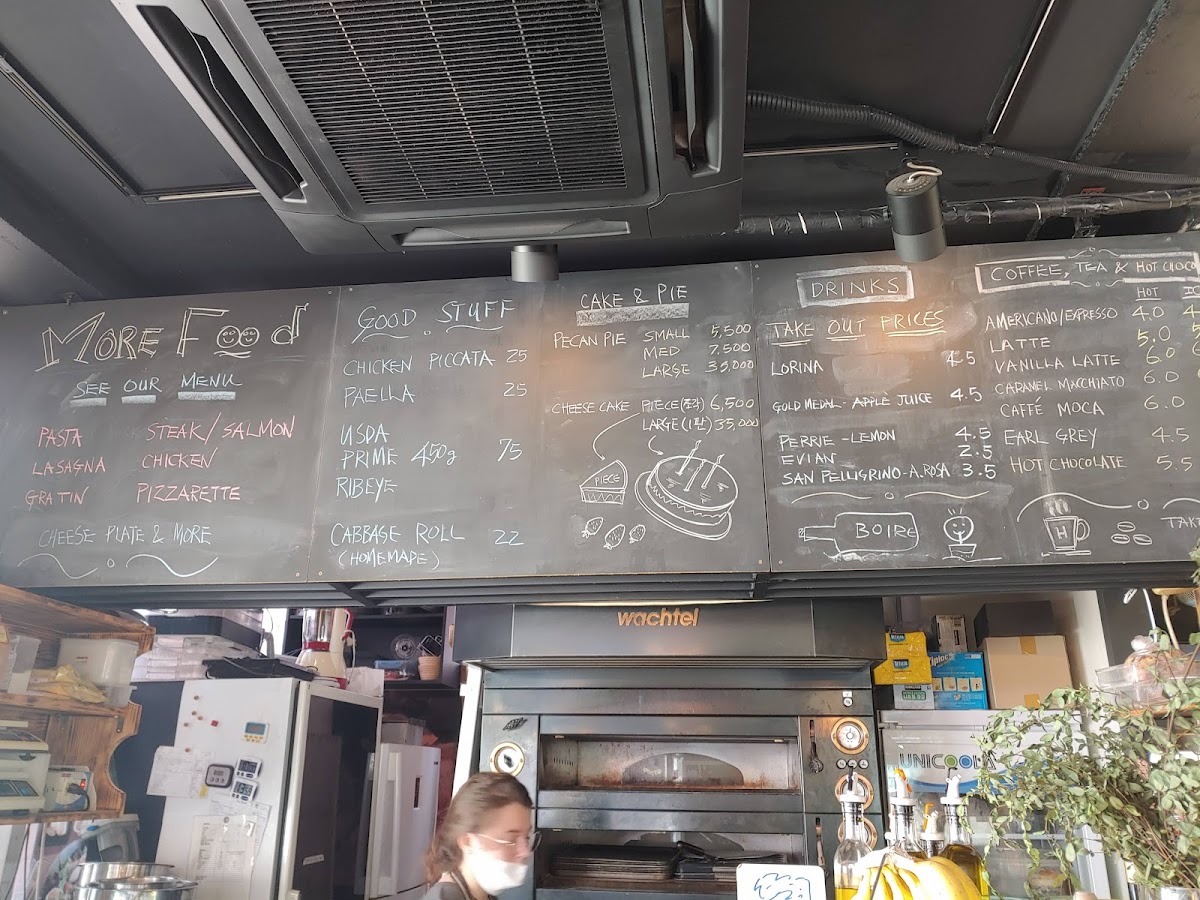 MORE Food
SEE OUR MENU
PASTA STEAK/SALMON
LASAGNA CHICKEN
GRATIN PIZZARETTE
CHEESE PLATE & MORE
GOOD STUFF
CHICKEN PICCATA 25
PAELLA 25
USDA
PRIME 450g 75
RIBEYE
CABBAGE ROLL 22
(HOMEMADE)
CAKE & PIE
PECAN PIE SMALL 5,500
MED 7,500
LARGE 35,000
CHEESE CAKE PIECE(조각) 6,500
LARGE(1판) 35,000
PIECE
DRINKS
TAKE OUT PRICES
LORINA 4.5
GOLD MEDAL - APPLE JUICE 4.5
PERRIE - LEMON 4.5
EVIAN 2.5
SAN PELLIGRINO - A.ROSA 3.5
BOIRE
COFFEE, TEA & HOT CHOCO
HOT
AMERICANO/EXPRESSO 4.0
LATTE 5.0
VANILLA LATTE 6.0
CARAMEL MACCHIATO 6.0
CAFFÉ MOCA 6.0
EARL GREY 4.5
HOT CHOCOLATE 5.5
H
TAK
wachtel
Ziploc
UNICOOLA